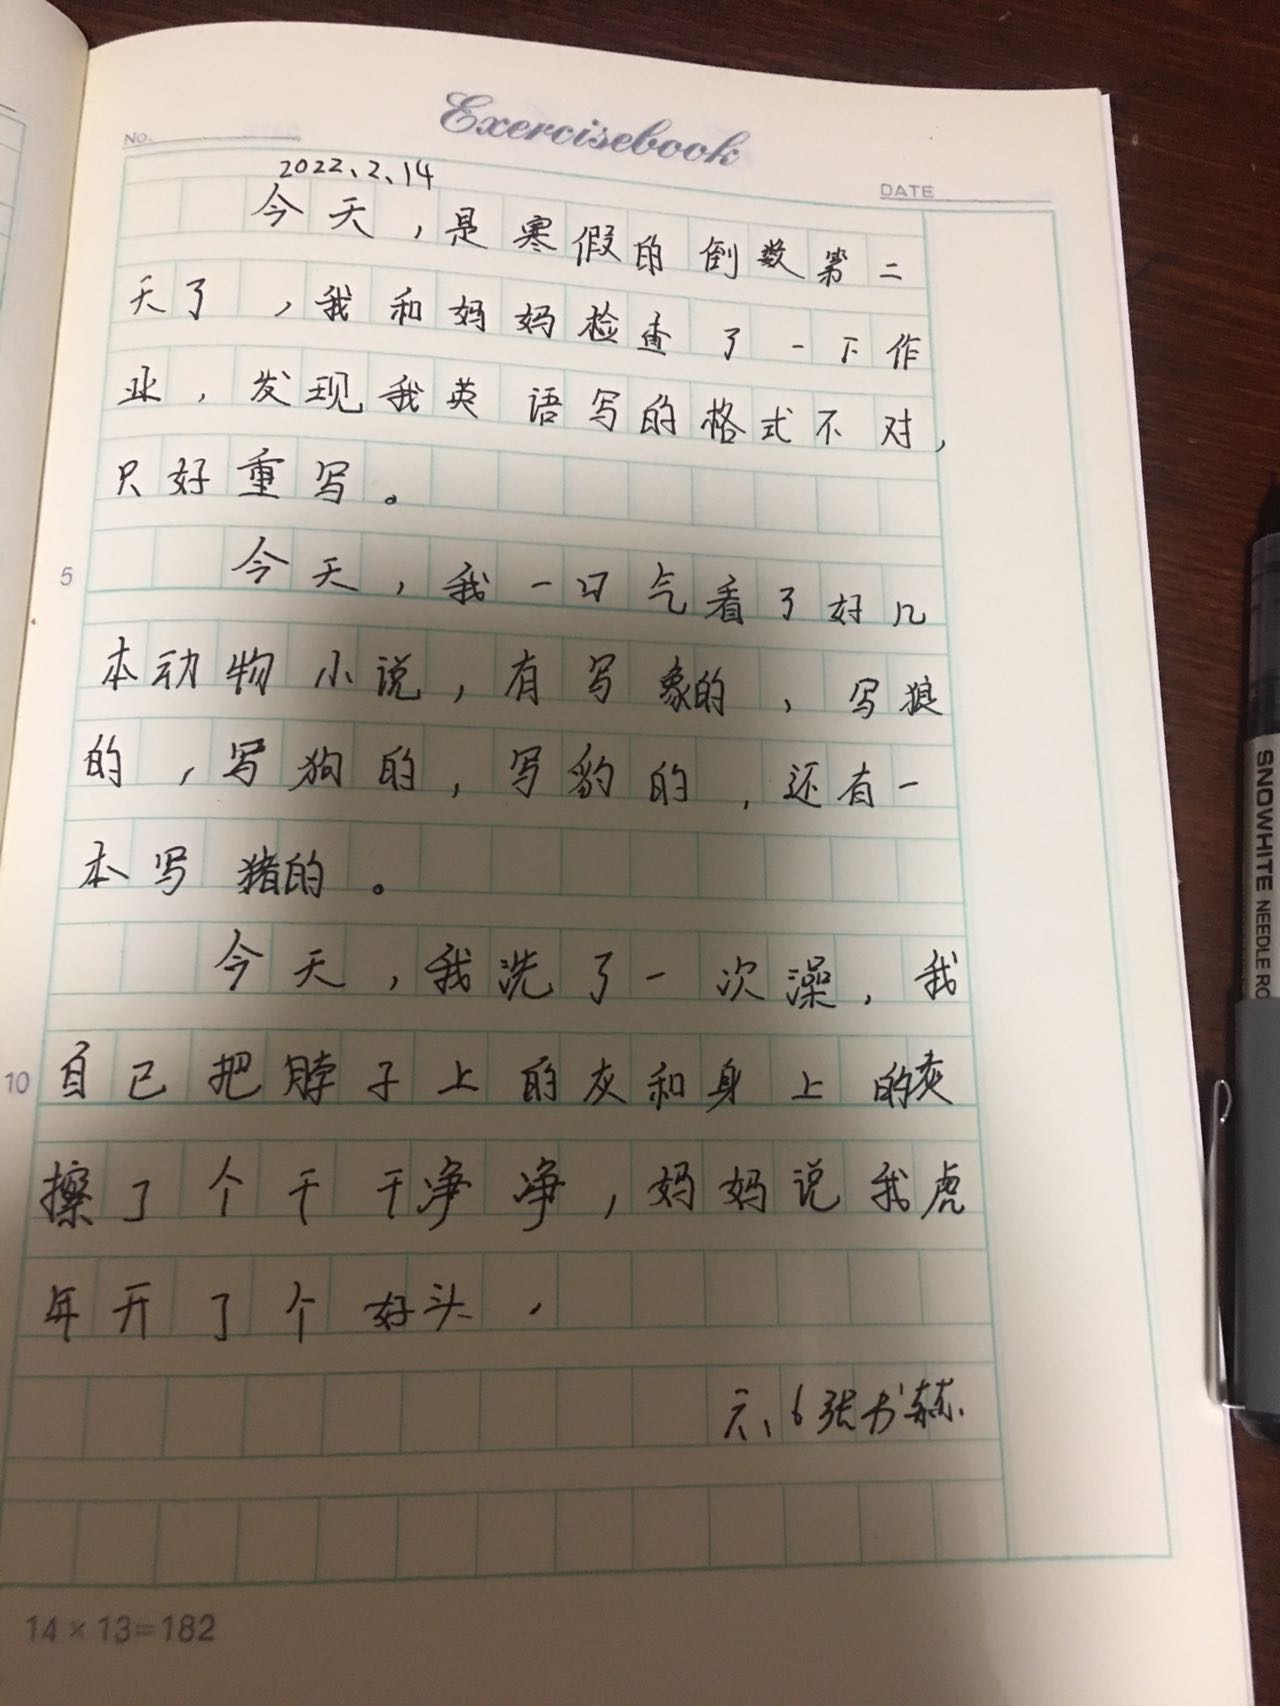 Exercisebook
NO.
DATE
2022、2、14
今天,是寒假的倒数第二
天了,我和妈妈检查了一下作
业,发现我英语写的格式不对,
只好重写。
5
今天,我一口气看了好几
本动物小说,有写象的,写狼
的,写狗的,写豹的,还有一
本写猪的。
今天,我洗了一次澡,我
10
自己把脖子上的灰和身上的灰
擦了个干干净净,妈妈说我虎
年开了个好头.
六、6张书
14×13=182
SNOWHITE NEEDLE RO